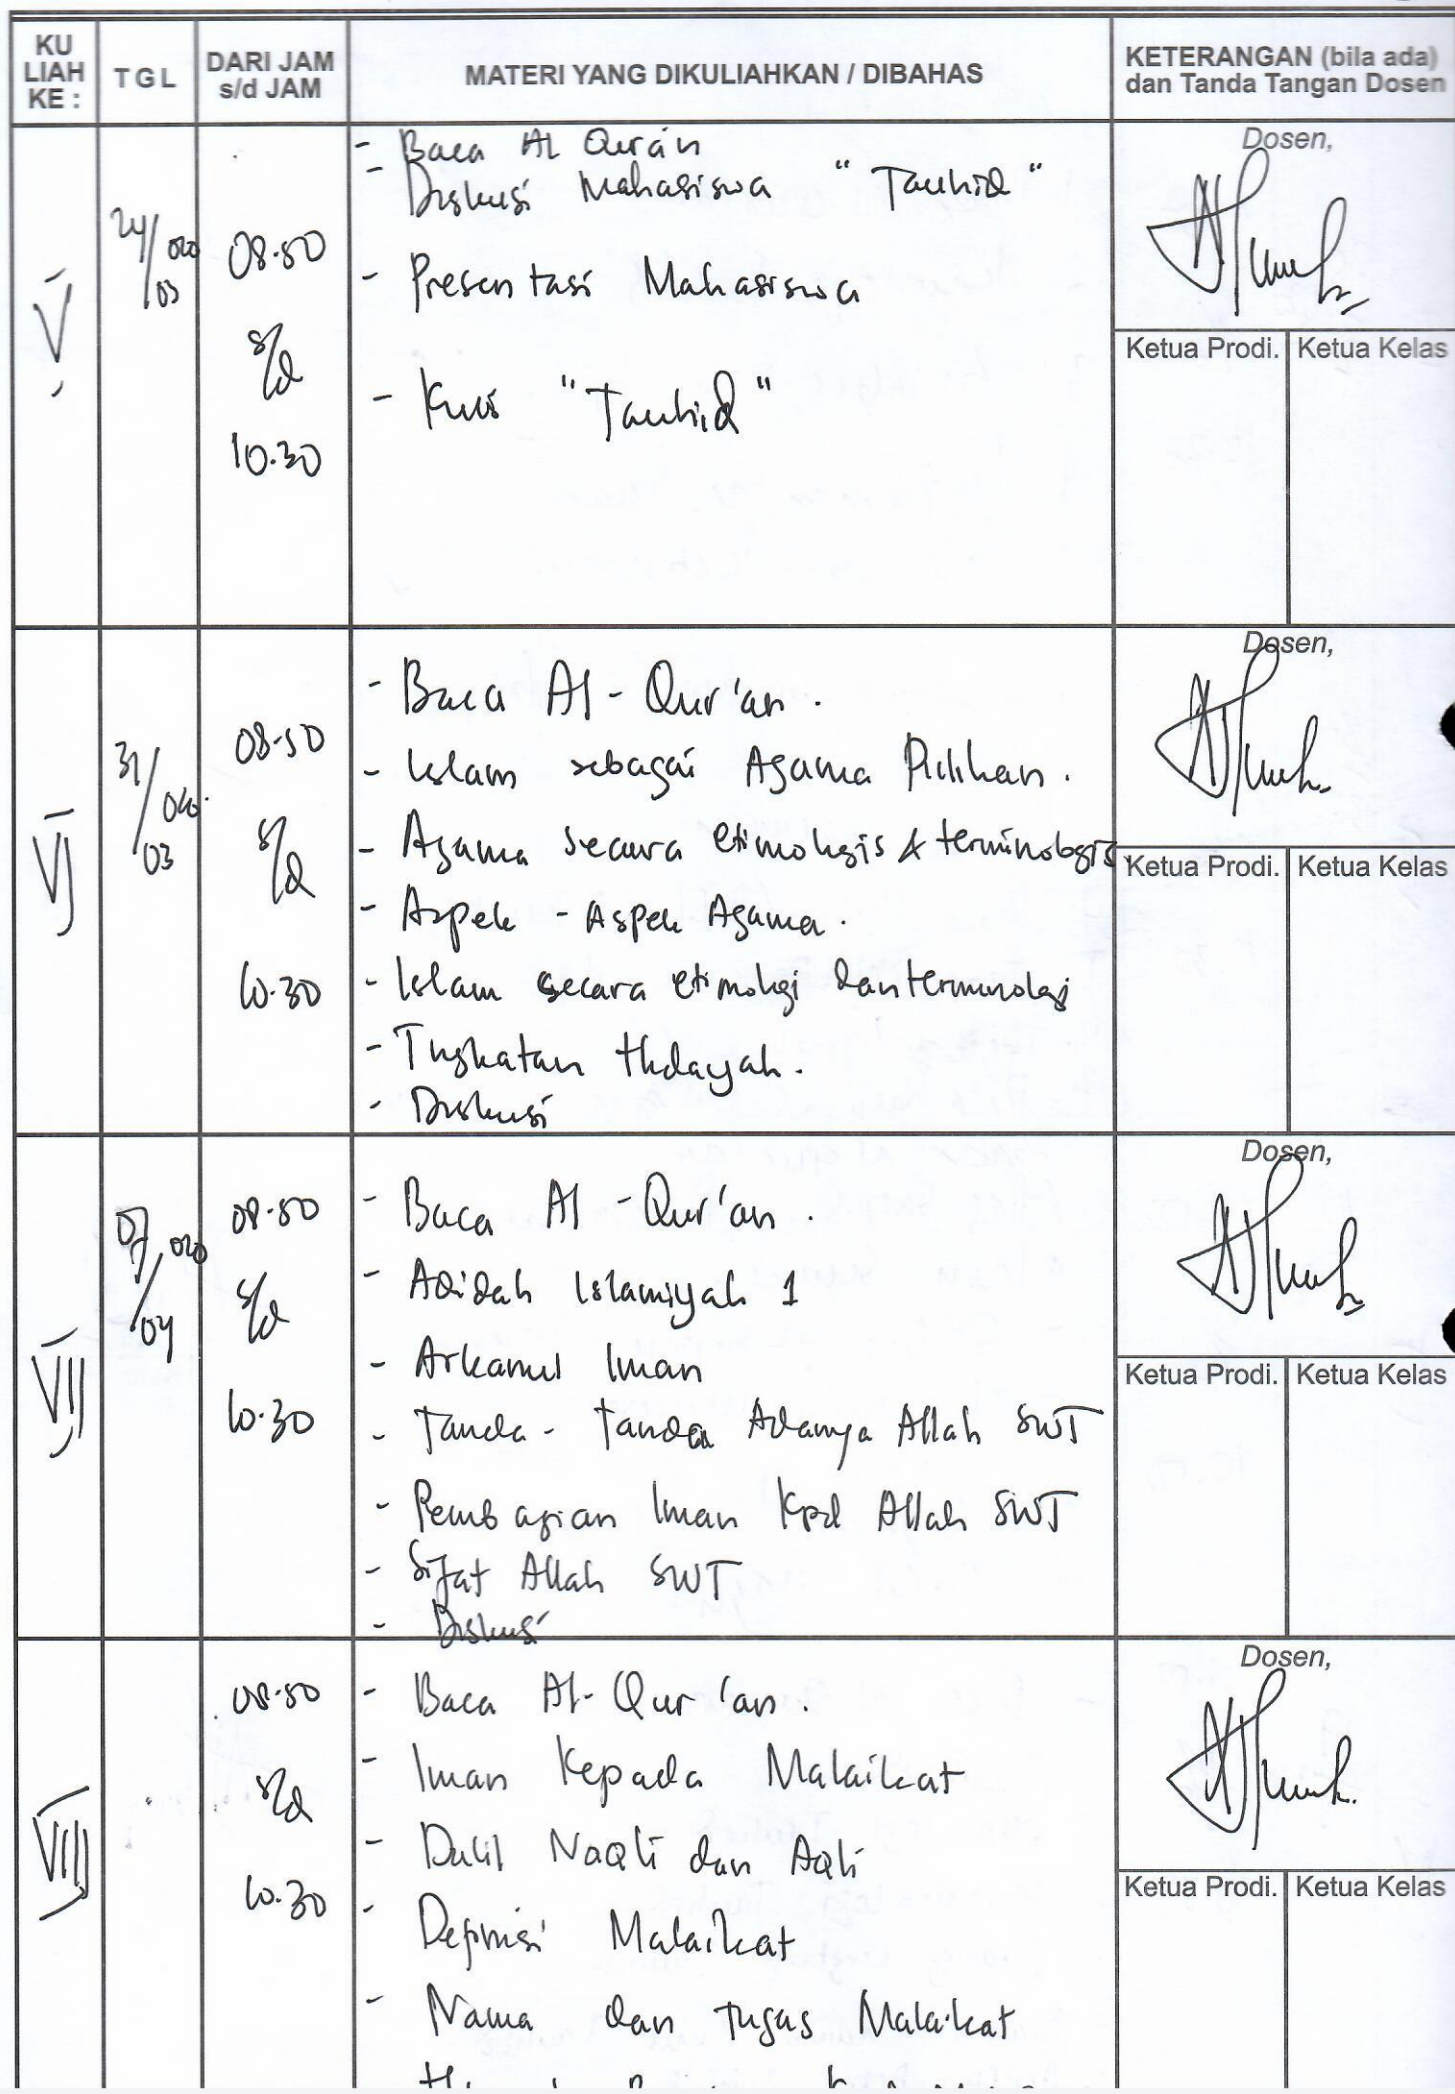 KU LIAH KE :
TGL
DARI JAM s/d JAM
MATERI YANG DIKULIAHKAN / DIBAHAS
KETERANGAN (bila ada) dan Tanda Tangan Dosen
V
24/03
08.50
s/d
10.30
- Baca Al Qur'an
- Diskusi Mahasiswa "Tauhid"
- Presentasi Mahasiswa
- Kuis "Tauhid"
Dosen,
Ketua Prodi. Ketua Kelas
VI
31/03
08.50
s/d
10.30
- Baca Al-Qur'an.
- Islam sebagai Agama Pilihan.
- Agama secara etimologis & terminologis
- Aspek - Aspek Agama.
- Islam secara etimologi dan terminologi
- Tingkatan Hidayah.
- Diskusi
Dosen,
Ketua Prodi. Ketua Kelas
VII
07/04
08.50
s/d
10.30
- Baca Al-Qur'an.
- Aqidah Islamiyah 1
- Arkanul Iman
- Tanda - tanda Adanya Allah SWT
- Pembagian Iman Kpd Allah SWT
- Sifat Allah SWT
- Diskusi
Dosen,
Ketua Prodi. Ketua Kelas
VIII
08.50
s/d
10.30
- Baca Al-Qur'an.
- Iman Kepada Malaikat
- Dalil Naqli dan Aqli
- Definisi Malaikat
- Nama dan Tugas Malaikat
Dosen,
Ketua Prodi. Ketua Kelas